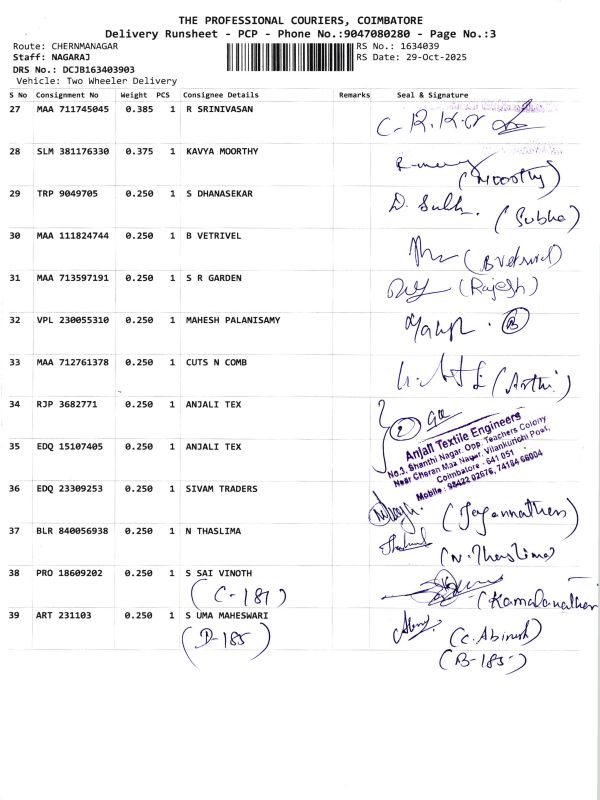 THE PROFESSIONAL COURIERS, COIMBATORE
Delivery Runsheet - PCP - Phone No.:9047080280 - Page No.:3
Route: CHERNMANAGAR RS No.: 1634039
Staff: NAGARAJ RS Date: 29-Oct-2025
DRS No.: DCJB163403903
Vehicle: Two Wheeler Delivery
S No Consignment No Weight PCS Consignee Details Remarks Seal & Signature
27 MAA 711745045 0.385 1 R SRINIVASAN
28 SLM 381176330 0.375 1 KAVYA MOORTHY (Moorthy)
29 TRP 9049705 0.250 1 S DHANASEKAR (Subha)
30 MAA 111824744 0.250 1 B VETRIVEL (B Vetrivel)
31 MAA 713597191 0.250 1 S R GARDEN (Rajesh)
32 VPL 230055310 0.250 1 MAHESH PALANISAMY
33 MAA 712761378 0.250 1 CUTS N COMB (Arthi)
34 RJP 3682771 0.250 1 ANJALI TEX 2
Anjali Textile Engineers
No.3, Shanthi Nagar, Opp. Teachers Colony
Near Cheran Maa Nagar, Vilankurichi Post,
Coimbatore - 641 051
Mobile : 98422 02676, 74184 66004
35 EDQ 15107405 0.250 1 ANJALI TEX
36 EDQ 23309253 0.250 1 SIVAM TRADERS (Jagannathan)
37 BLR 840056938 0.250 1 N THASLIMA (N. Thaslima)
38 PRO 18609202 0.250 1 S SAI VINOTH
(C-187) (Kamalanathan
39 ART 231103 0.250 1 S UMA MAHESWARI
(D-185) (C. Abinesh)
(B-185)